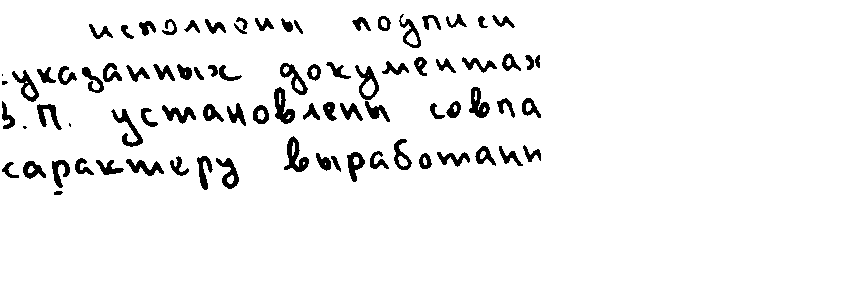 исполнены подписи
указанных документах
З.П. установлены совпа
характеру выработанн